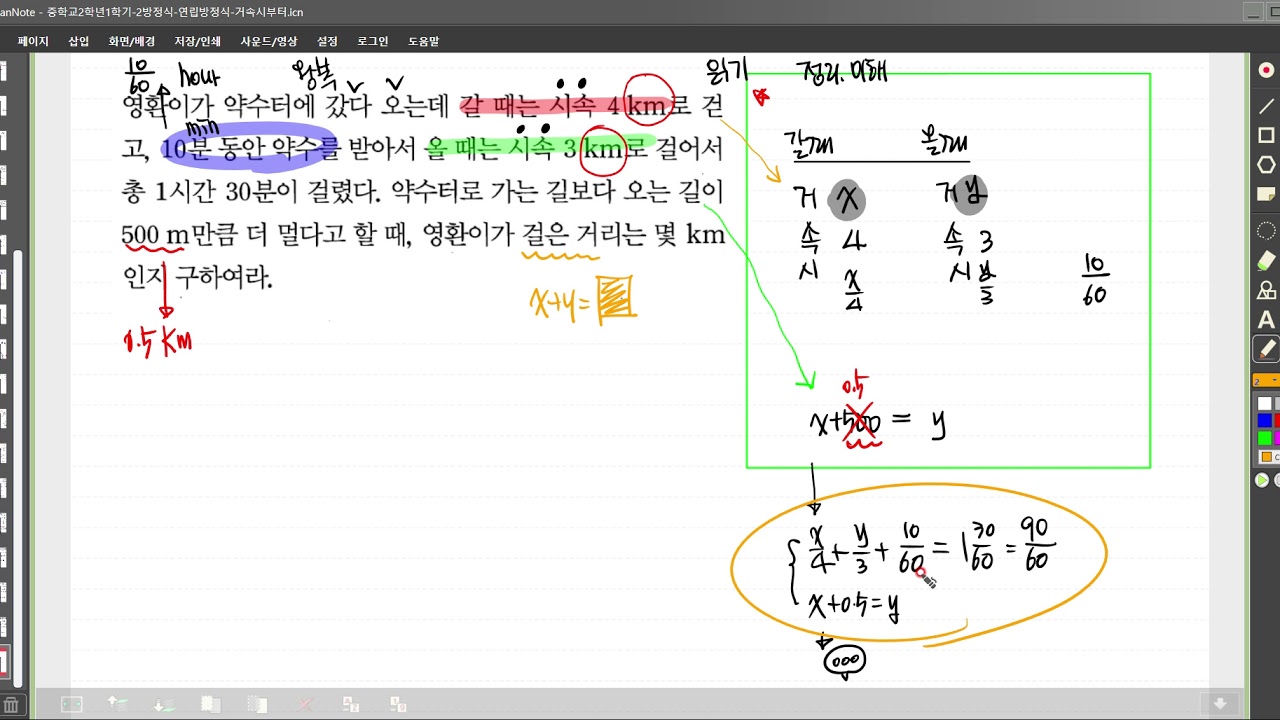 anNote - 중학교2학년1학기-2방정식-연립방정식-거속시부터.icn
페이지 삽입 화면/배경 저장/인쇄 사운드/영상 설정 로그인 도움말
10/60 hour 왕복 읽기 정리.이해
영환이가 약수터에 갔다 오는데 갈 때는 시속 4 km로 걷
min
고, 10분 동안 약수를 받아서 올 때는 시속 3 km로 걸어서
총 1시간 30분이 걸렸다. 약수터로 가는 길보다 오는 길이
500 m만큼 더 멀다고 할 때, 영환이가 걸은 거리는 몇 km
인지 구하여라.
x+y=
0.5 Km
갈때 올때
거 x 거 y
속 4 속 3
시 x/4 시 y/3 10/60
0.5
x+500 = y
x/4 + y/3 + 10/60 = 1 30/60 = 90/60
x+0.5=y
000